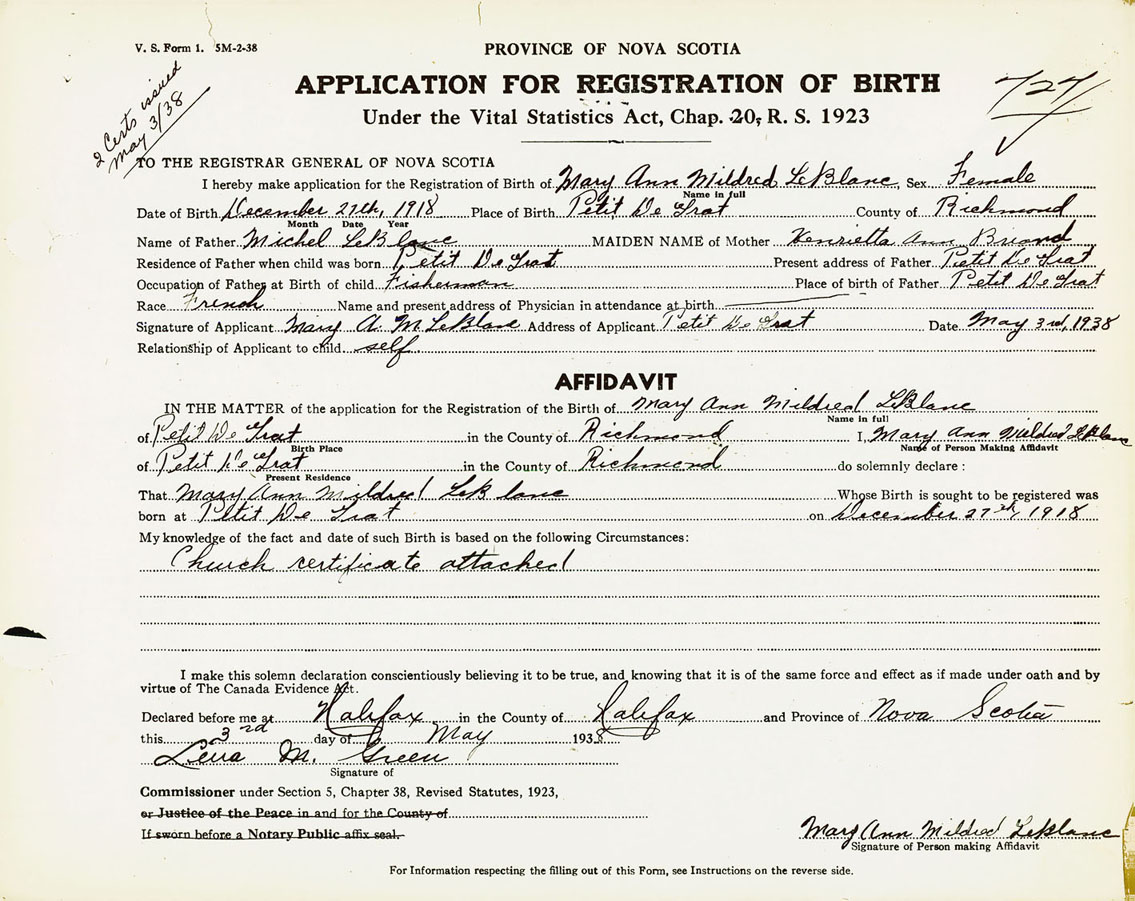 V. S. Form 1. 5M-2-38
PROVINCE OF NOVA SCOTIA
2 Certs issued
May 3/38
727
APPLICATION FOR REGISTRATION OF BIRTH
Under the Vital Statistics Act, Chap. 20, R. S. 1923
TO THE REGISTRAR GENERAL OF NOVA SCOTIA
I hereby make application for the Registration of Birth of Mary Ann Mildred LeBlanc, Sex Female
Name in full
Date of Birth December 27th, 1918 Place of Birth Petit De Grat County of Richmond
Month Date Year
Name of Father Michel LeBlanc MAIDEN NAME of Mother Henrietta Ann Briand
Residence of Father when child was born Petit De Grat Present address of Father Petit De Grat
Occupation of Father at Birth of child Fisherman Place of birth of Father Petit De Grat
Race French Name and present address of Physician in attendance at birth
Signature of Applicant Mary A. M. LeBlanc Address of Applicant Petit De Grat Date May 3rd, 1938
Relationship of Applicant to child self
AFFIDAVIT
IN THE MATTER of the application for the Registration of the Birth of Mary Ann Mildred LeBlanc
Name in full
of Petit De Grat in the County of Richmond I, Mary Ann Mildred LeBlanc
Birth Place Name of Person Making Affidavit
of Petit De Grat in the County of Richmond do solemnly declare :
Present Residence
That Mary Ann Mildred LeBlanc Whose Birth is sought to be registered was
born at Petit De Grat on December 27th, 1918
My knowledge of the fact and date of such Birth is based on the following Circumstances:
Church certificate attached
I make this solemn declaration conscientiously believing it to be true, and knowing that it is of the same force and effect as if made under oath and by
virtue of The Canada Evidence Act.
Declared before me at Halifax in the County of Halifax and Province of Nova Scotia
this 3rd day of May 1938
Lena M. Green
Signature of
Commissioner under Section 5, Chapter 38, Revised Statutes, 1923,
or Justice of the Peace in and for the County of
If sworn before a Notary Public affix seal.
Mary Ann Mildred LeBlanc
Signature of Person making Affidavit
For Information respecting the filling out of this Form, see Instructions on the reverse side.